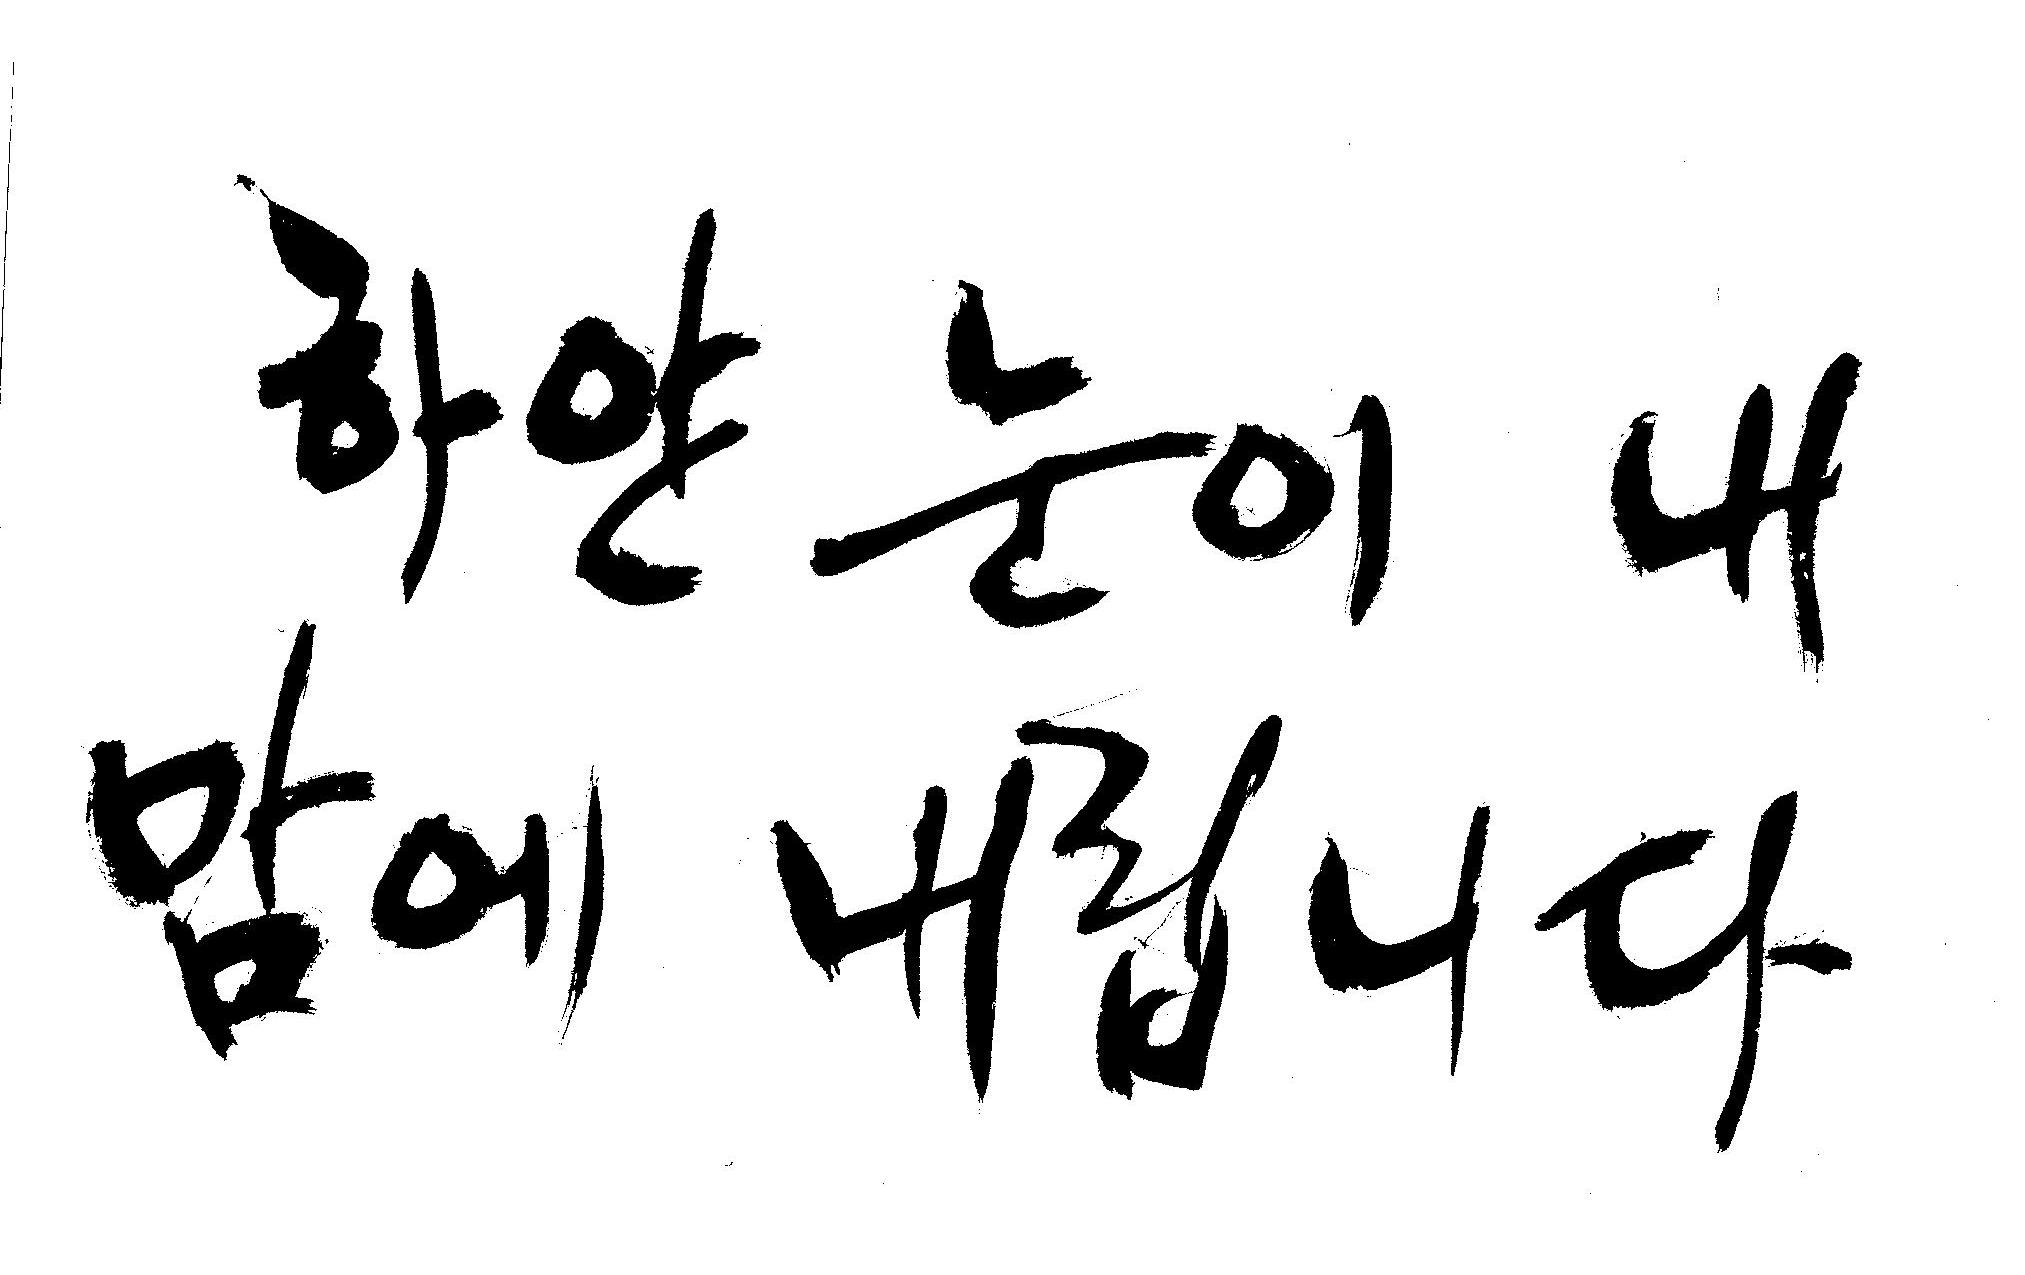 하얀 눈이 내
맘에 내립니다